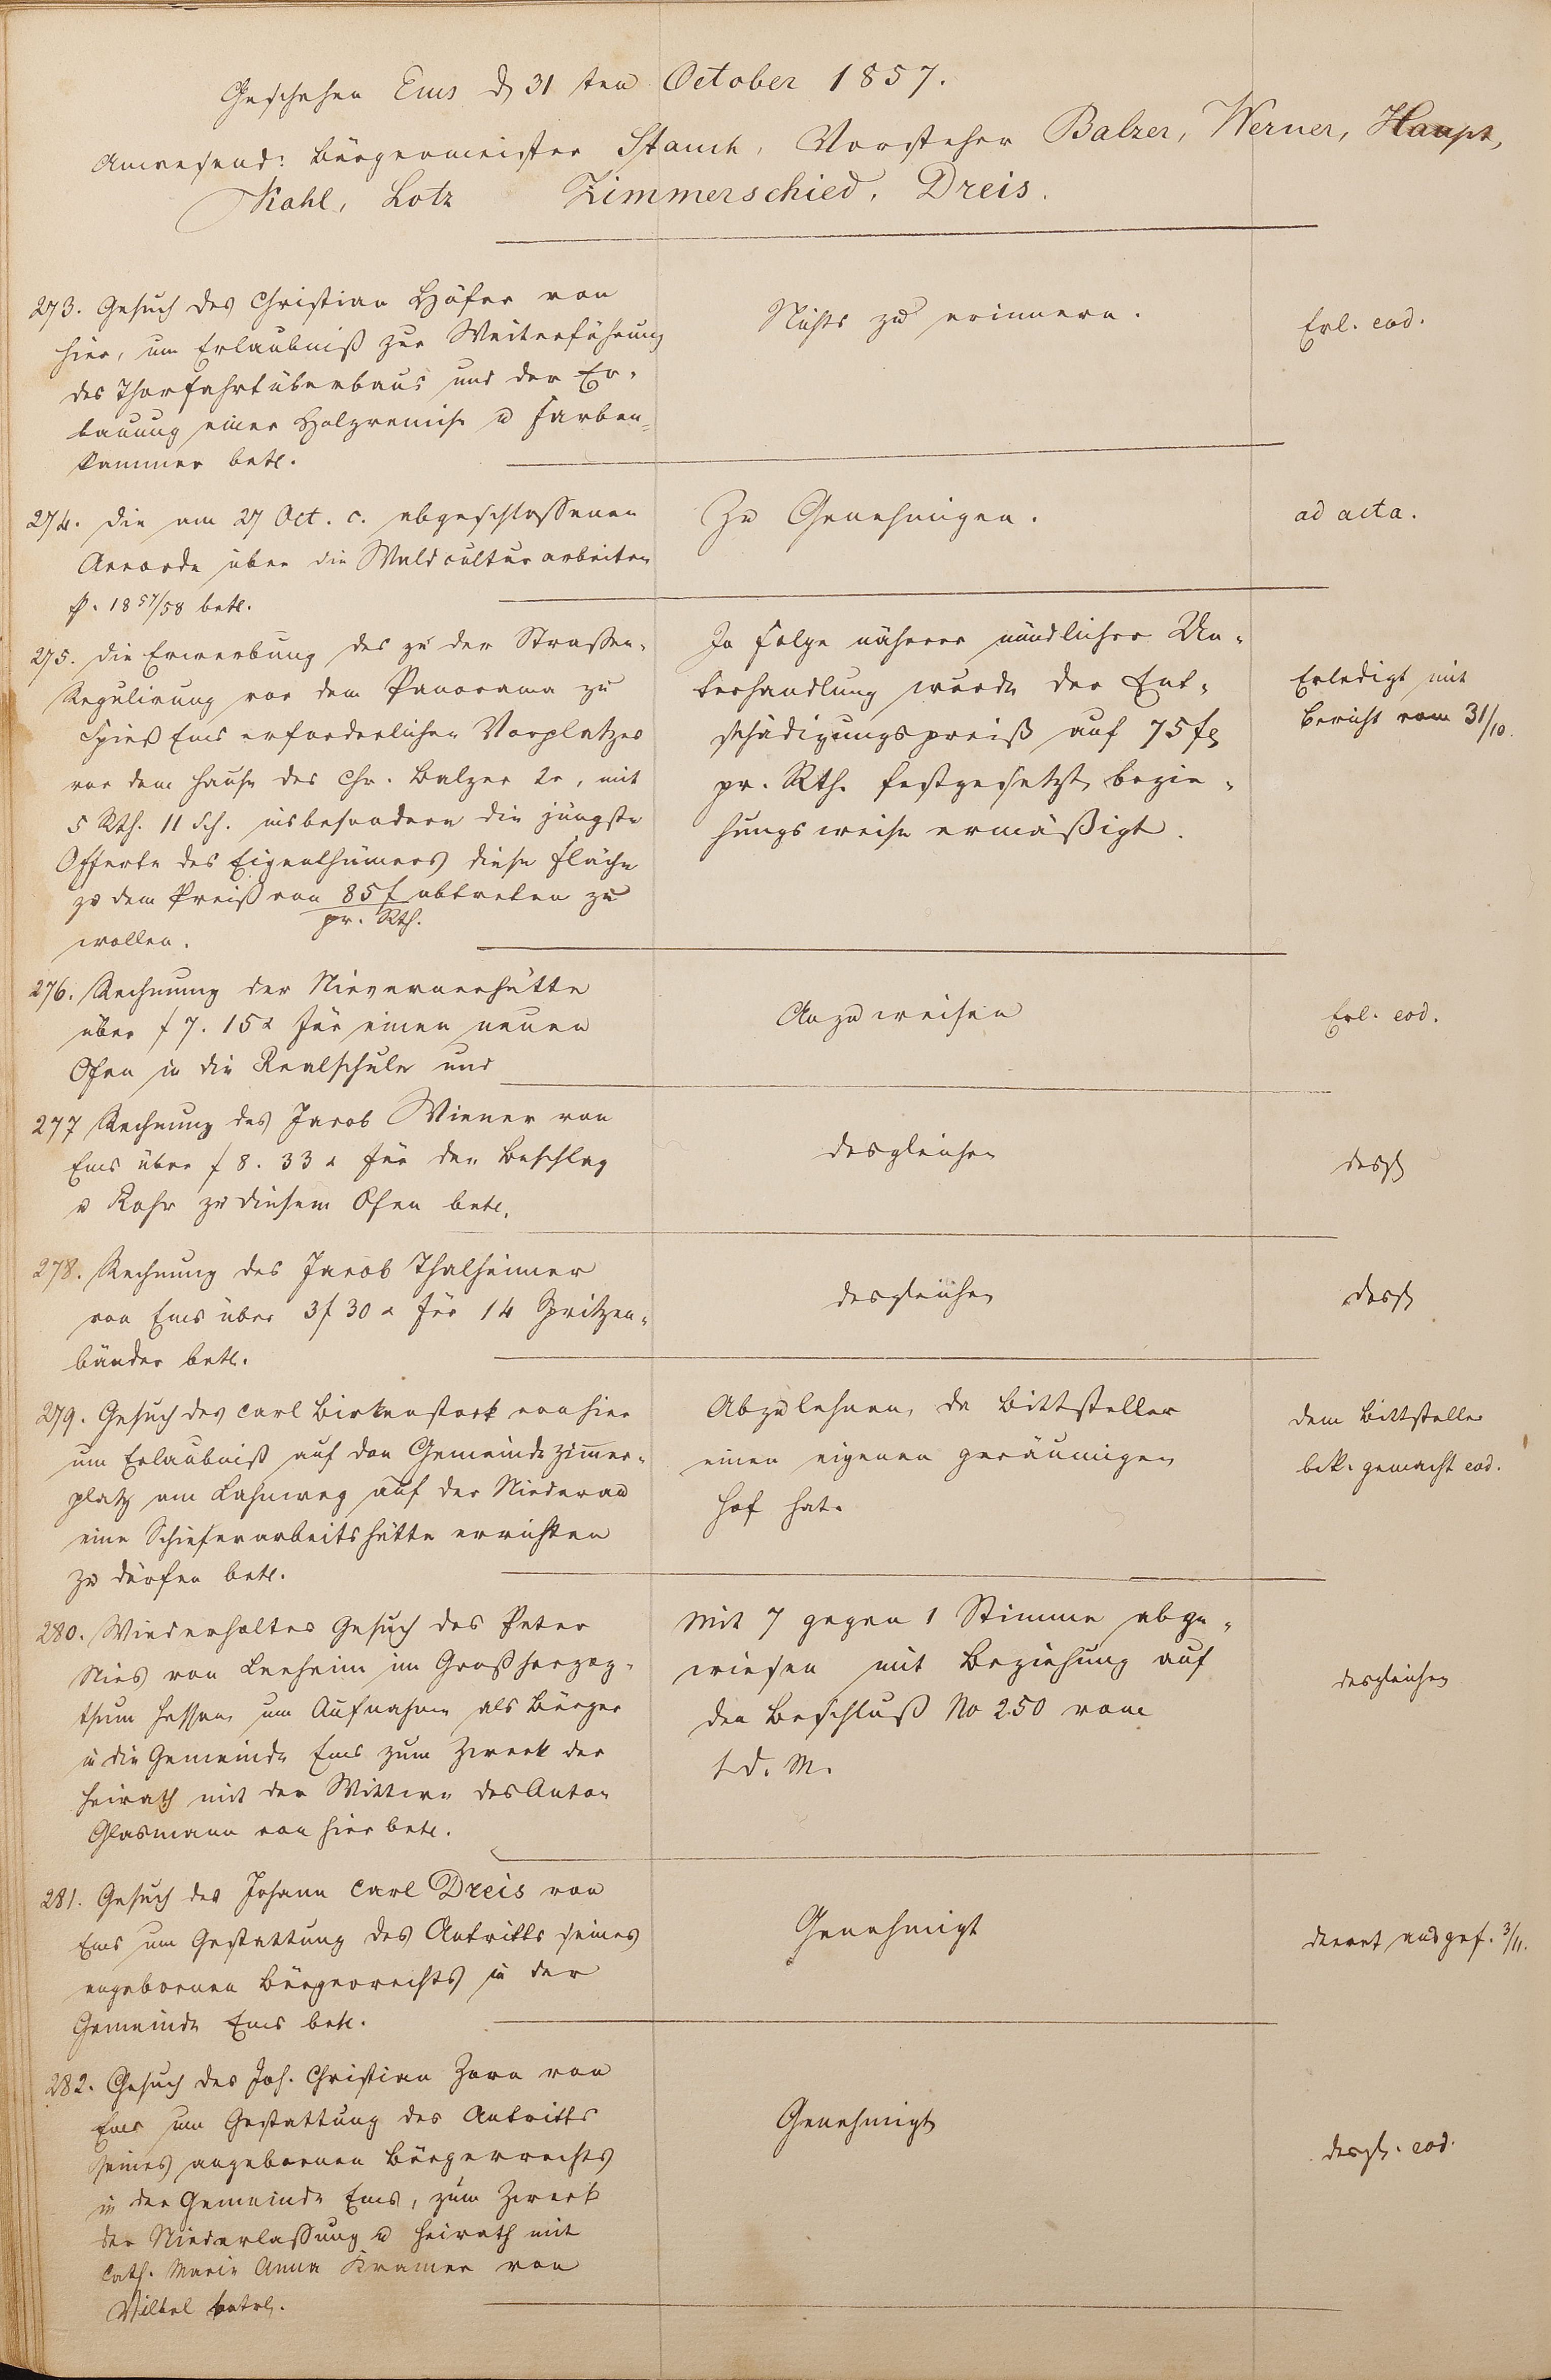 Geschehen Ems d 31ten October 1857.
Anwesend: Bürgermeister Stauch, Vorsteher Balzer, Werner, Haupt,
Kahl, Lotz Zimmerschied, Dreis.
273. Gesuch des Christian Höfer von
hier, um Erlaubniß zur Weiterführung
des Thorfahrtüberbaus und der Er-
bauung einer Holzremise u Farben=
kammer betr.
Nichts zu erinnern.
Erl. eod.
274. Die am 27 Oct. c. abgeschlossenen
Accorde über die Waldculturarbeiten
p. 1857/58 betr.
Zu Genehmigen.
ad acta.
275. Die Erwerbung des zu der Strassen-
Regulirung vor dem Panorama zu
Spieß Ems erforderlichen Vorplatzes
vor dem Hause des Chr. Balzer 2r, mit
5 Rth. 11 Sch. insbesondere die jüngste
Offerte des Eigenthümers diese Fläche
zu dem Preiß von 85 f abtreten zu
pr. Rth.
wollen.
In Folge näherer mündlicher Un-
terhandlung wurde der Ent-
schädigungspreiß auf 75 fl
pr. Rth. festgesetzt, bezie-
hungsweise ermäßigt.
Erledigt mit
Bericht vom 31/10.
276. Rechnung der Nievernerhütte
über f 7. 15 x für einen neuen
Ofen in die Realschule und
Anzuweisen
Erl. eod.
277 Rechnung des Jacob Wiener von
Ems über f 8. 33 x für den Beschlag
u Rohr zu diesem Ofen betr.
desgleichen
desgl
278. Rechnung des Jacob Thalheimer
von Ems über 3 f 30 x für 14 Spritzen-
bänder betr.
desgleichen
desgl
279. Gesuch des Carl Birkenstock von hier
um Erlaubniß auf den Gemeindezimer-
platz am Lahnweg auf der Niederau
eine Schieferarbeitshütte errichten
zu dürfen betr.
Abzulehnen, da Bittsteller
einen eigenen geräumigen
Hof hat.
Dem Bittsteller
bek. gemacht eod.
280. Wiederholtes Gesuch des Peter
Nies von Leeheim im Großherzog-
thum Hessen, um Aufnahme als Bürger
in die Gemeinde Ems zum Zweck der
Heirath mit der Wittwe des Anton
Glasmann von hier betr.
Mit 7 gegen 1 Stimme abge-
wiesen mit Beziehung auf
den Beschluß No 250 vom
1 d. M.
desgleichen
281. Gesuch des Johann Carl Dreis von
Ems um Gestattung des Antritts seines
angebornen Bürgerrechts in der
Gemeinde Ems betr.
Genehmigt
Decret ausgef. 3/11.
282. Gesuch des Joh. Christian Zorn von
Ems um Gestattung des Antritts
seines angebornen Bürgerrechts
in der Gemeinde Ems, zum Zweck
der Niederlassung u Heirath mit
Cath. Marie Anna Kramer von
Vilbel betrf.
Genehmigt
desgl. eod.